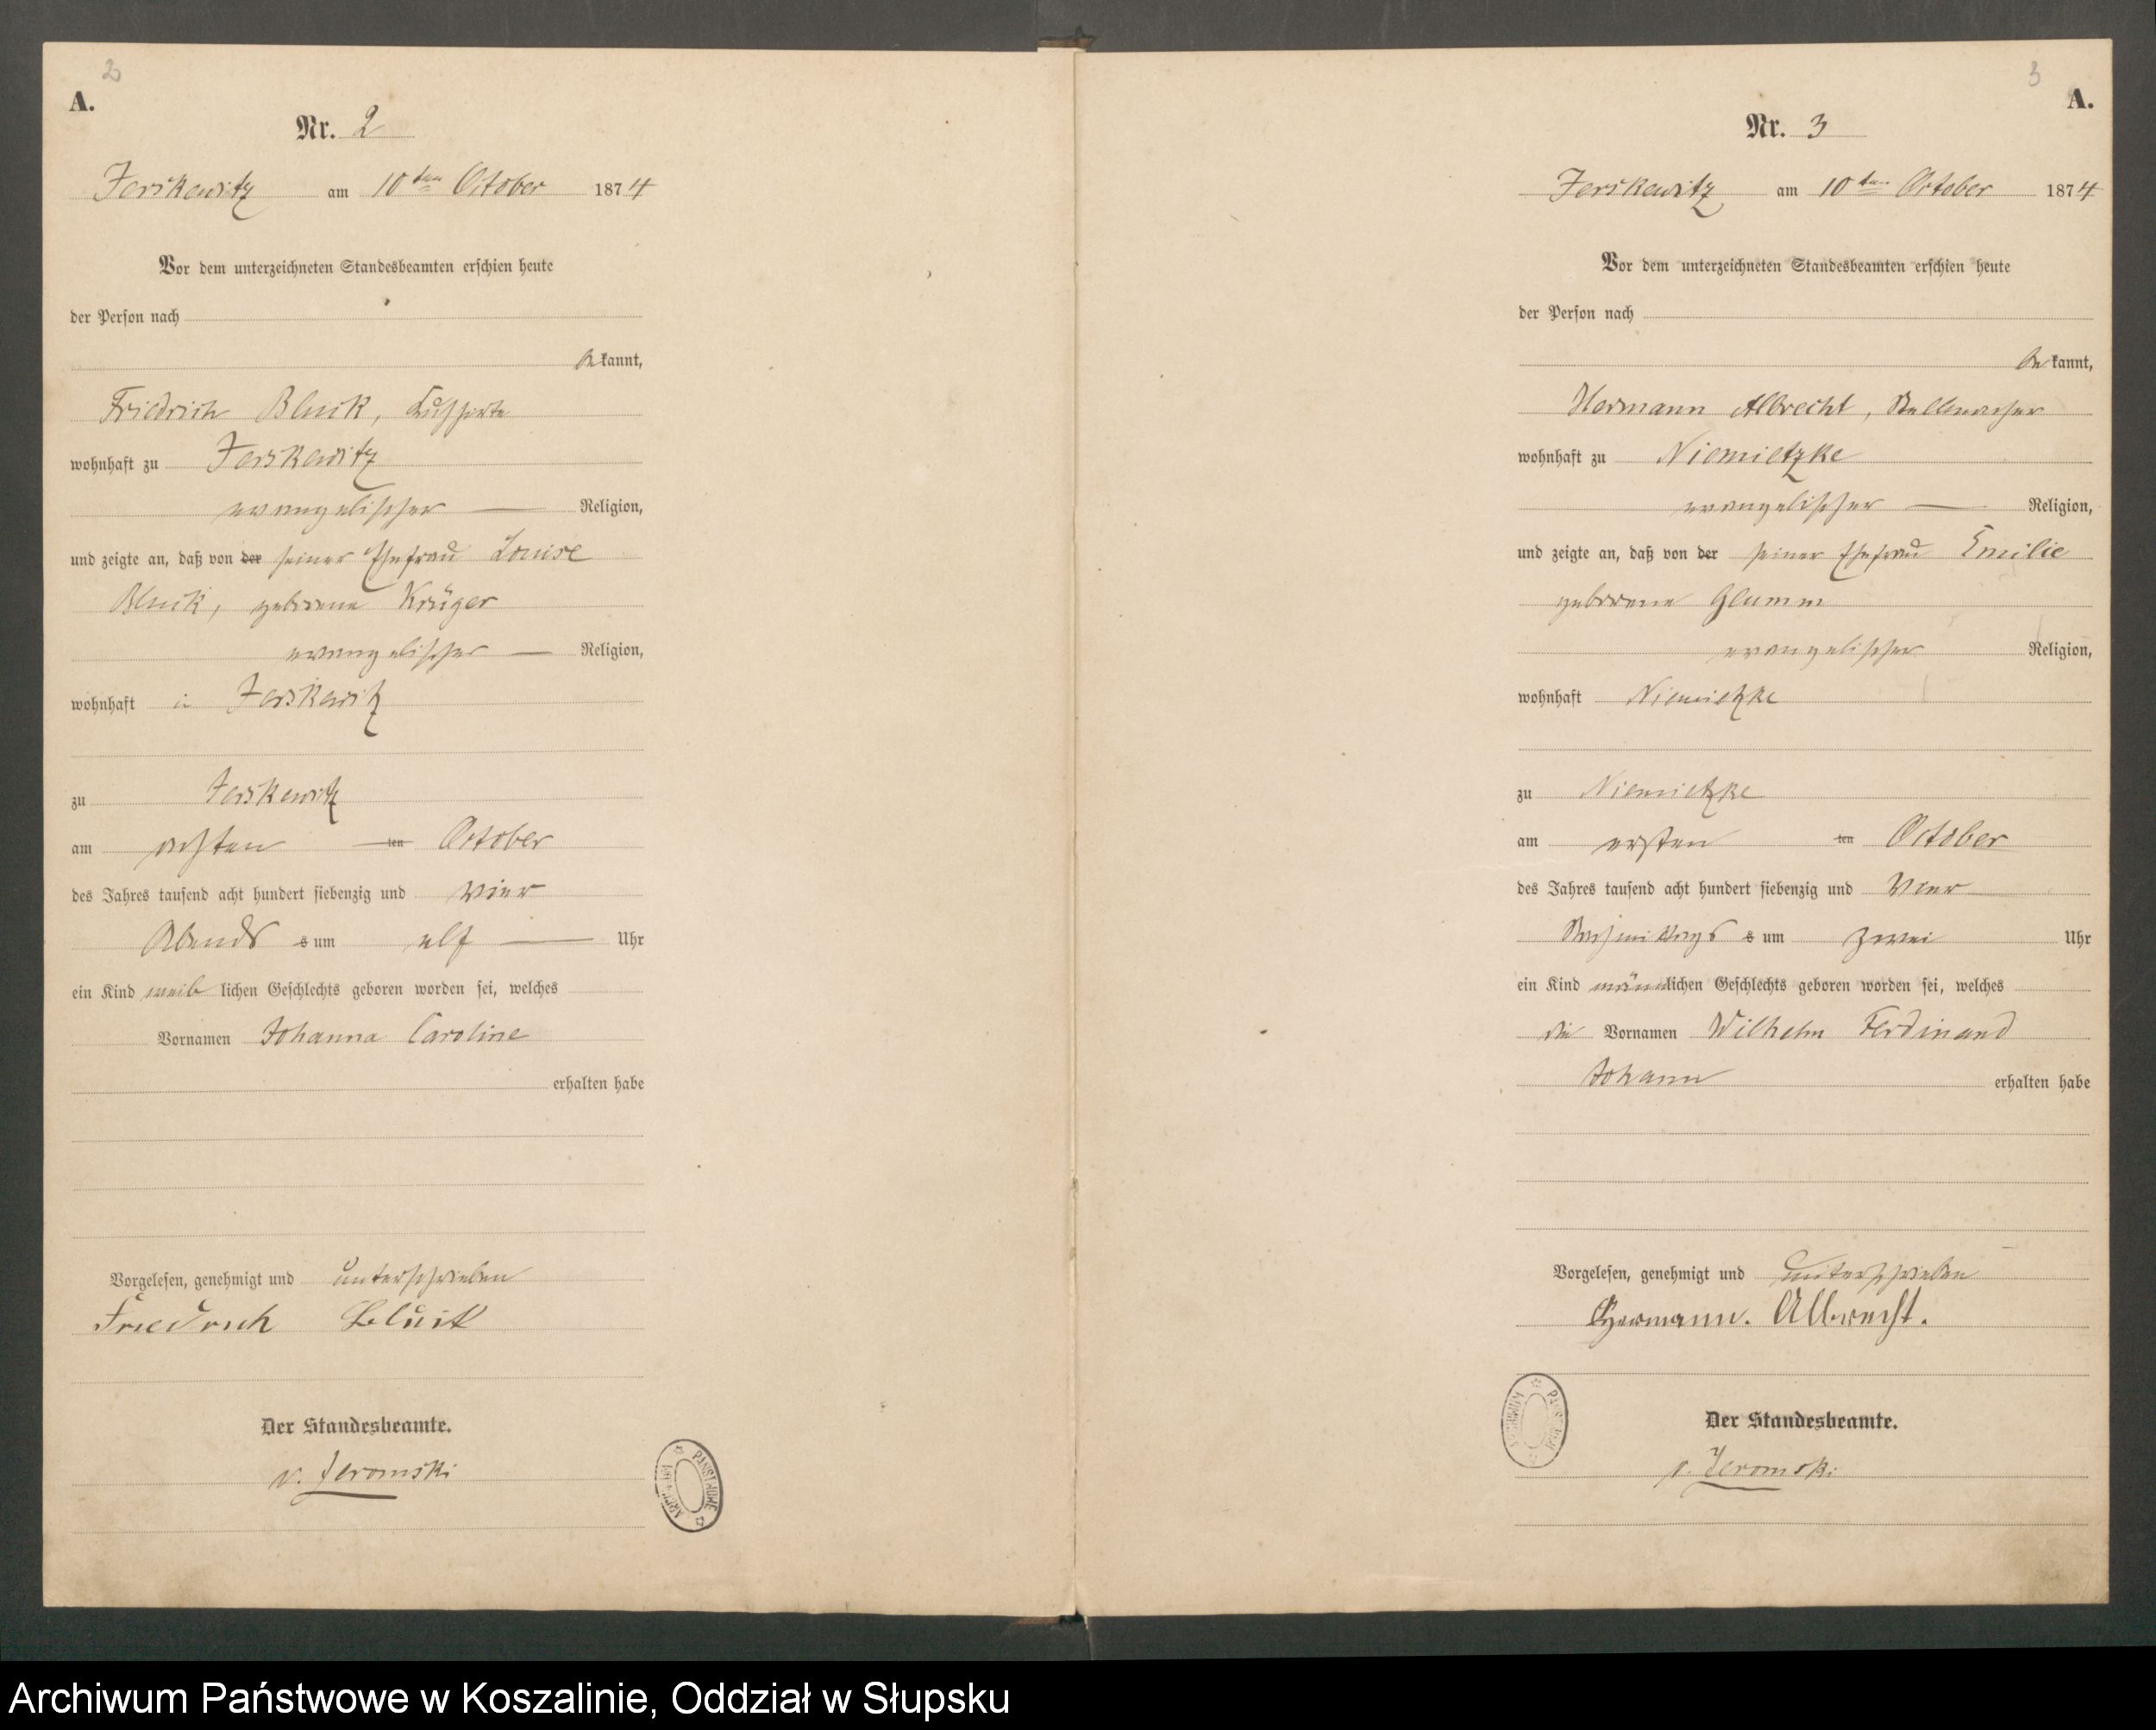 2
A.
Nr. 2
Jerskewitz am 10ten October 1874
Vor dem unterzeichneten Standesbeamten erschien heute
der Person nach
bekannt,
Friedrich
wohnhaft zu Jerskewitz
evangelischer Religion,
und zeigte an, daß von der seiner Ehefrau Louise
geborene Krüger
evangelischer Religion,
wohnhaft in Jerskewitz
zu Jerskewitz
am achten ten October
des Jahres tausend acht hundert siebenzig und vier
Abends s um elf Uhr
ein Kind weiblichen Geschlechts geboren worden sei, welches
Vornamen Johanna Caroline
erhalten habe
Vorgelesen, genehmigt und unterschrieben
Friedrich
Der Standesbeamte.
v. Jeromski
3
A.
Nr. 3
Jerskewitz am 10ten October 1874
Vor dem unterzeichneten Standesbeamten erschien heute
der Person nach
bekannt,
Hermann Albrecht, Stellmacher
wohnhaft zu Niemietzke
evangelischer Religion,
und zeigte an, daß von der seiner Ehefrau Emilie
geborene Glumm
evangelischer Religion,
wohnhaft Niemietzke
zu Niemietzke
am ersten ten October
des Jahres tausend acht hundert siebenzig und vier
Nachmittags s um zwei Uhr
ein Kind männlichen Geschlechts geboren worden sei, welches
die Vornamen Wilhelm Ferdinand
Johann erhalten habe
Vorgelesen, genehmigt und unterschrieben
Hermann. Albrecht.
Der Standesbeamte.
v. Jeromski
ARCHIWUM PAŃSTWOWE
Archiwum Państwowe w Koszalinie, Oddział w Słupsku